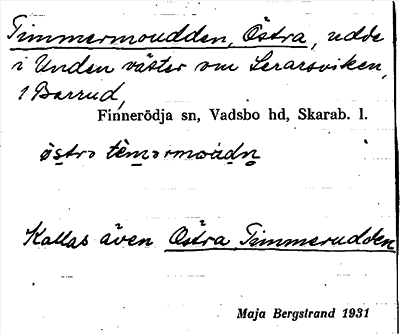 Timmermoudden, Östra, udde
i Unden väster om Lerarsviken,
1 Barrud,
Finnerödja sn, Vadsbo hd, Skarab. l.
östro
Kallas även Östra Timmerudden
Maja Bergstrand 1931